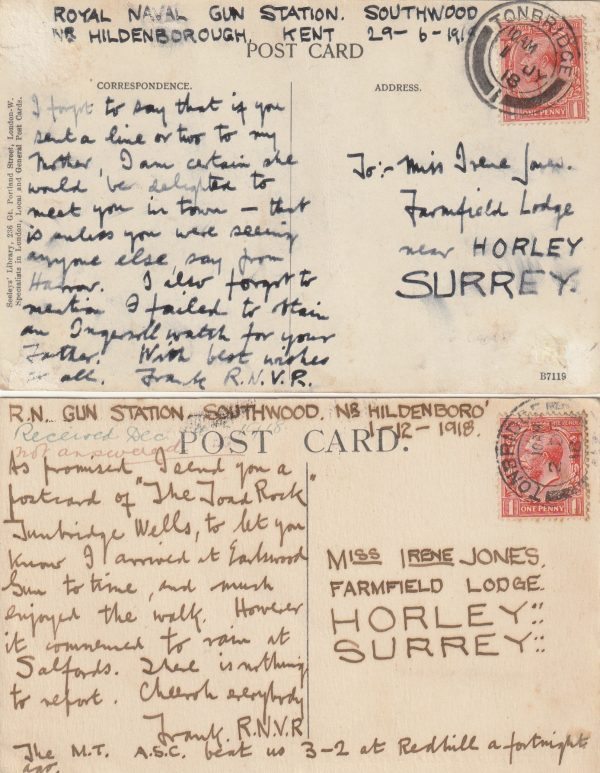 ROYAL NAVAL GUN STATION. SOUTHWOOD
NR HILDENBOROUGH, KENT 29-6-1918
POST CARD
TONBRIDGE
JY
18
ONE PENNY
CORRESPONDENCE.
ADDRESS.
Seeleys' Library, 236 Gt. Portland Street, London-W.
Specialists in London, Local and General Post Cards.
I forgot to say that if you
sent a line or two to my
Mother, I am certain she
would be delighted to
meet you in town – that
is unless you were seeing
anyone else, say from
Harrow. I also forgot to
mention I failed to obtain
an Ingersoll watch for your
Father. With best wishes
to all. Frank R.N.V.R.
To:- Miss Irene Jones.
Farmfield Lodge
near HORLEY
SURREY.
B7119
R.N. GUN STATION. SOUTHWOOD. NR HILDENBORO'
1-12-1918.
Received Dec
not answered
POST CARD.
TONBRIDGE
ONE PENNY
As promised I send you a
postcard of "The Toad Rock"
Tunbridge Wells, to let you
know I arrived at Earlswood
Gun to time, and much
enjoyed the walk. However
it commenced to rain at
Salfords. There is nothing
to report. Cheeroh everybody
Frank. R.N.V.R
The M.T. A.S.C. beat us 3-2 at Redhill a fortnight
ago.
MISS IRENE JONES.
FARMFIELD LODGE.
HORLEY::
SURREY::